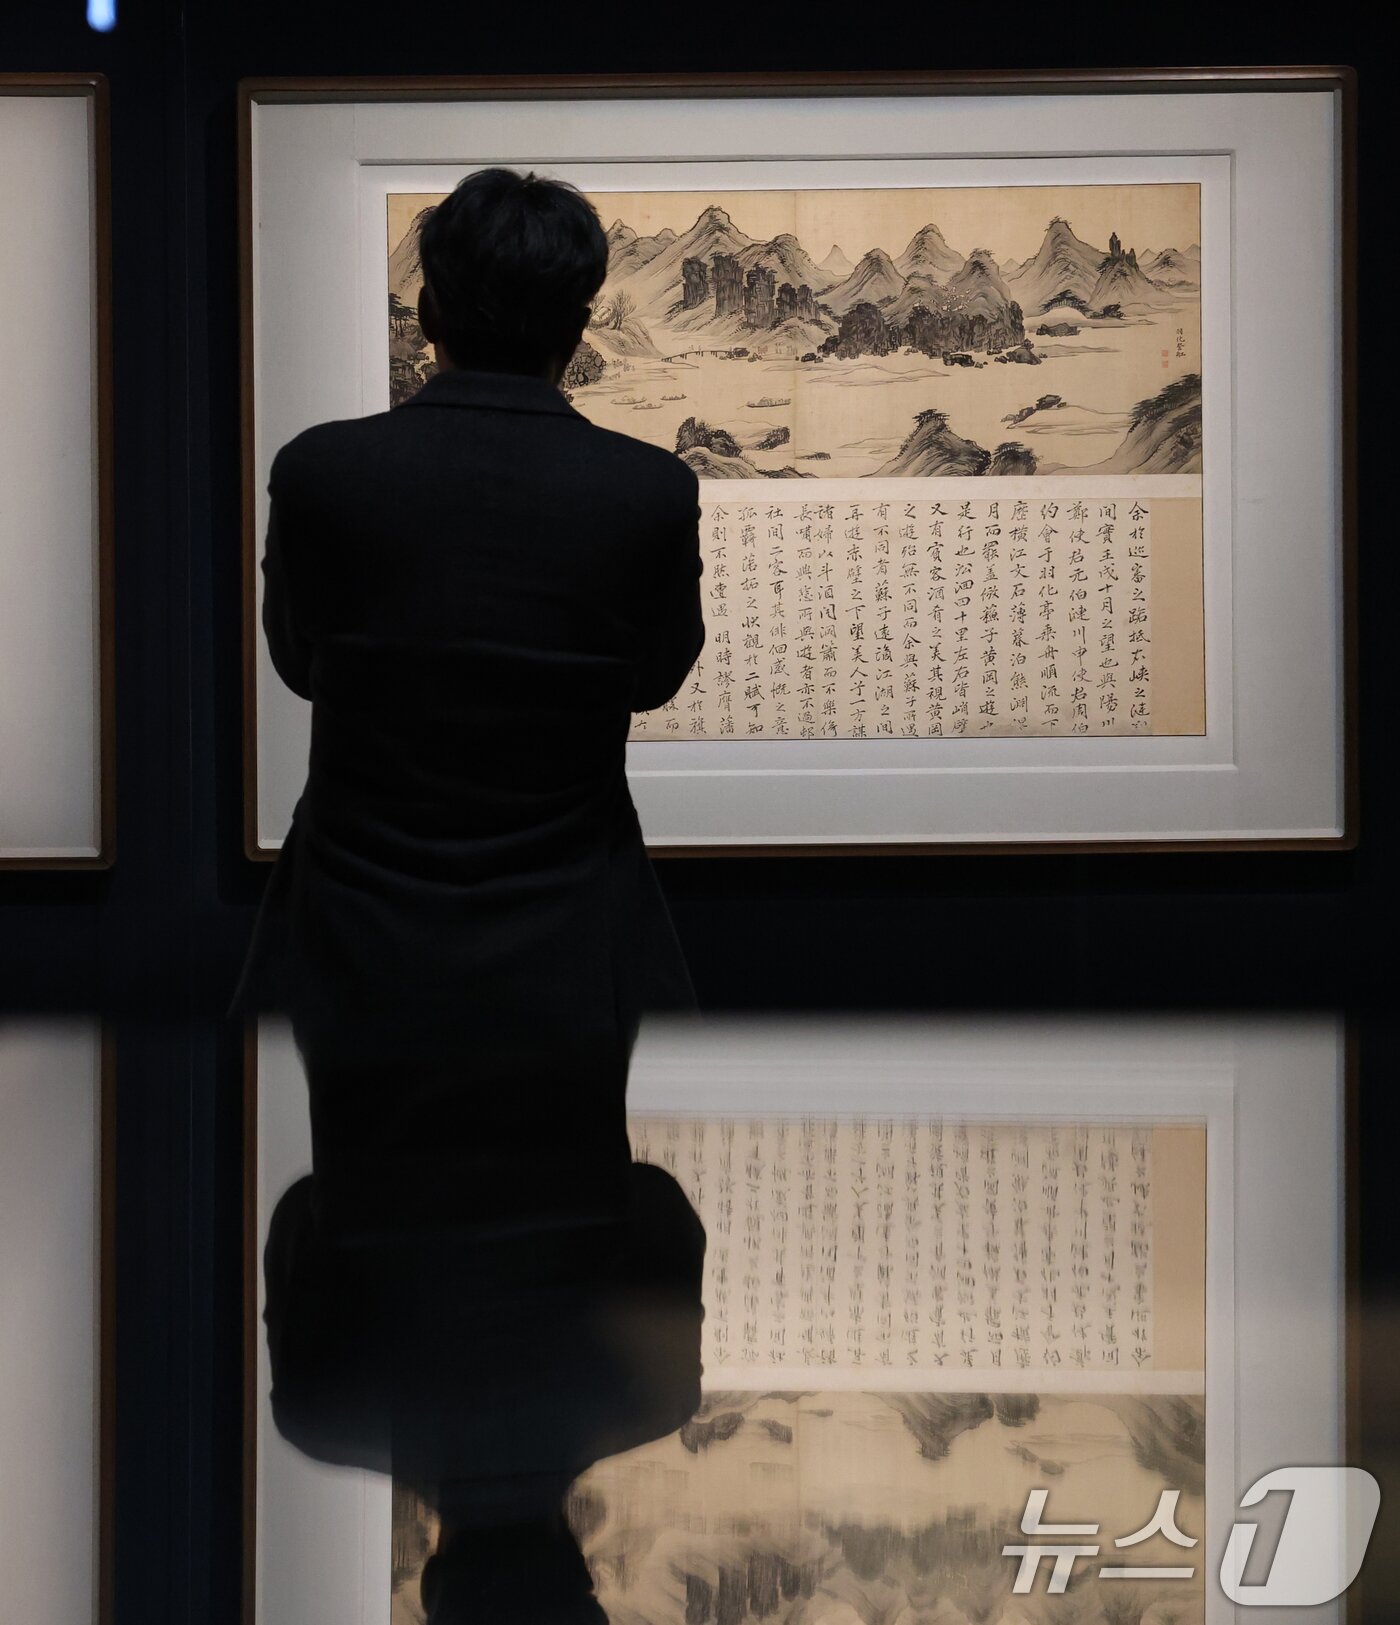 羽化登舡
余於巡審之路抵右峽之漣
間實壬戌十月之望也與陽川
鄭使君元伯漣川申使君周伯
約會于羽化亭乘舟順流而下
歷橫江文石薄暮泊熊淵
月而罷盖倣蘓子黄岡之遊
是行也沿洄四十里左右皆峭壁
又有賓客酒肴之美其視黄岡
之遊殆無不同而余與蘇子所遇
有不同者蘇子遠謫江湖之間
再遊赤壁之下望美人于一方謀
諸婦以斗酒聞洞簫而不樂倚
長嘯而興悲所與遊者亦不過邨
社間二客耳其俳佪感慨之意
孤羈落拓之状觀於二賦可知
余則不然遭遇 明時謬膺藩
又於
而
뉴스1